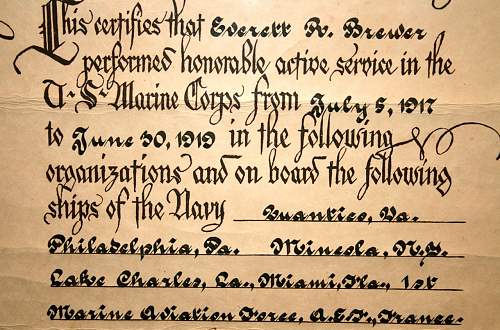 This certifies that Everett W. Brewer
performed honorable active service in the
U·S·Marine Corps from July 5, 1917
to June 30, 1919 in the following
organizations and on board the following
ships of the Navy Quantico, Va.
Philadelphia, Pa. Mineola, N.Y.
Lake Charles, La., Miami, Fla., 1st
Marine Aviation Force, A.E.F., France.